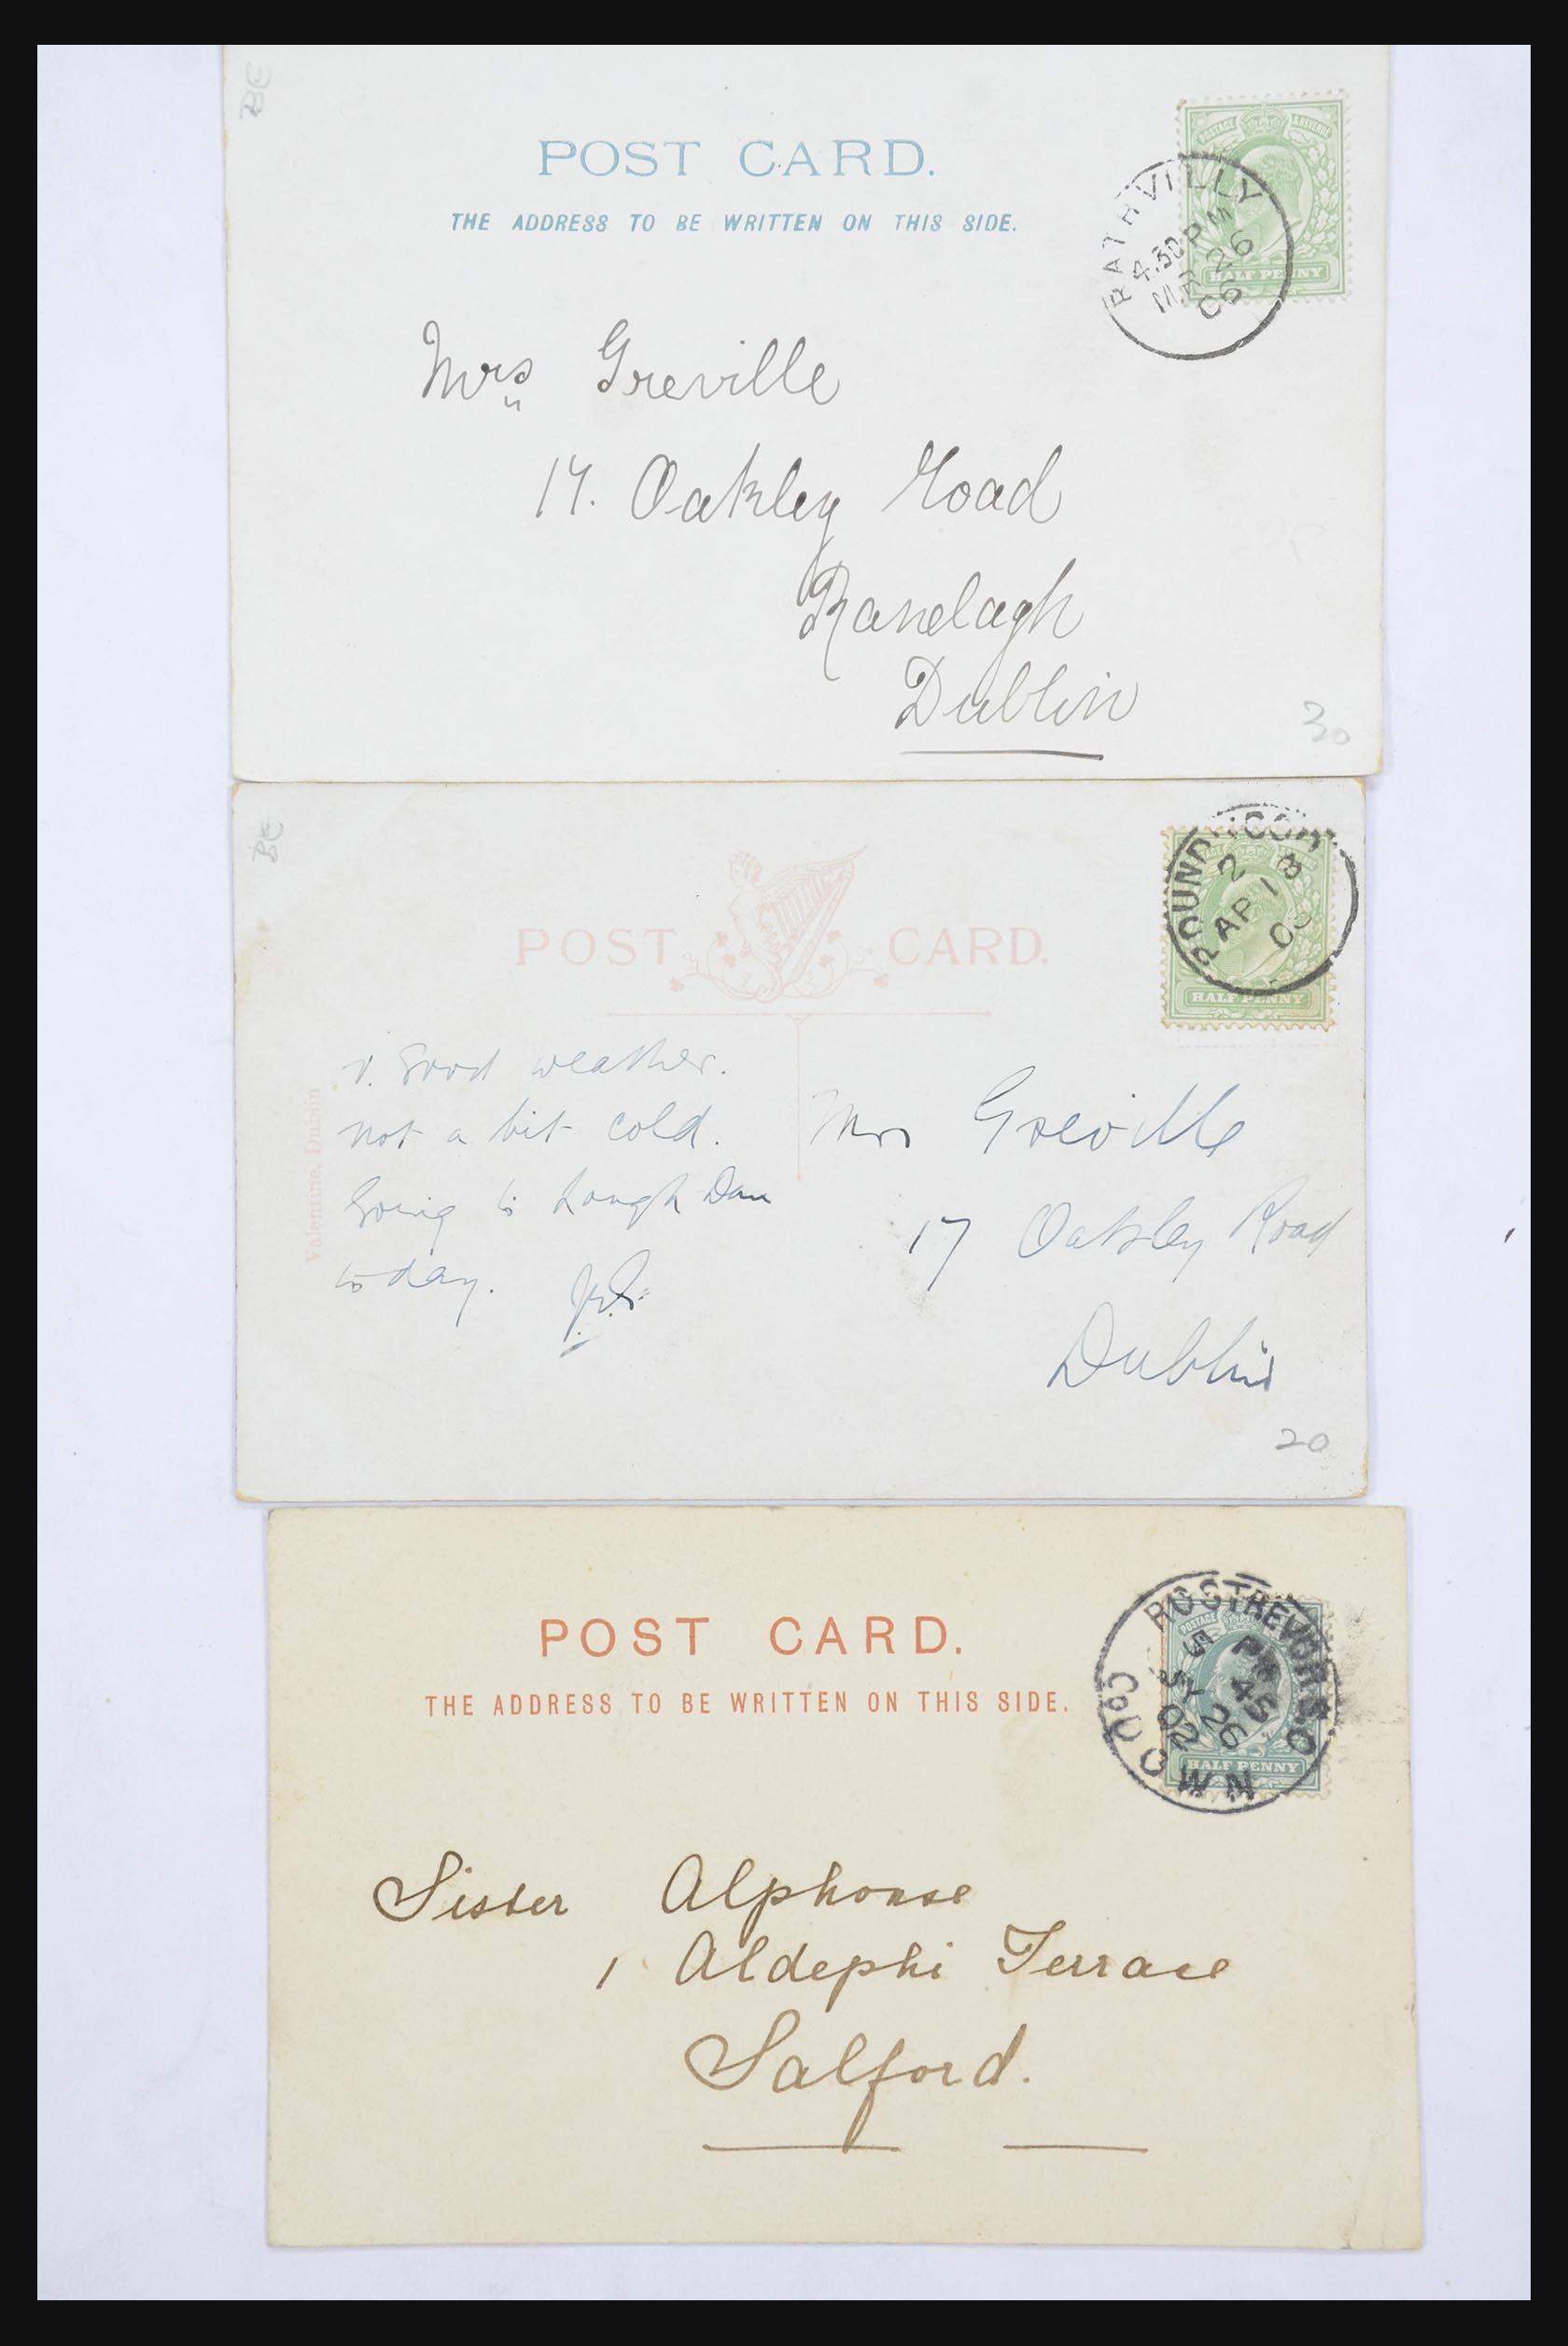 BC
POST CARD.
THE ADDRESS TO BE WRITTEN ON THIS SIDE.
POSTAGE REVENUE
HALF PENNY
RATHVILLY
4.30 PM
MR 26
06
Mrs Greville
17. Oakley Road
Ranelagh
Dublin
30
BC
POST CARD.
HALF PENNY
2
AP 18
Valentine, Dublin
V. Good weather.
not a bit cold.
Going to Lough Dan
today.
Mrs Greville
17 Oakley Road
Dublin
20
POST CARD.
THE ADDRESS TO BE WRITTEN ON THIS SIDE.
POSTAGE
HALF PENNY
ROSTREVOR S.O
5 PM 45
SY 26
02
CO. DOWN
Sister Alphonse
1 Aldephi Terrace
Salford.